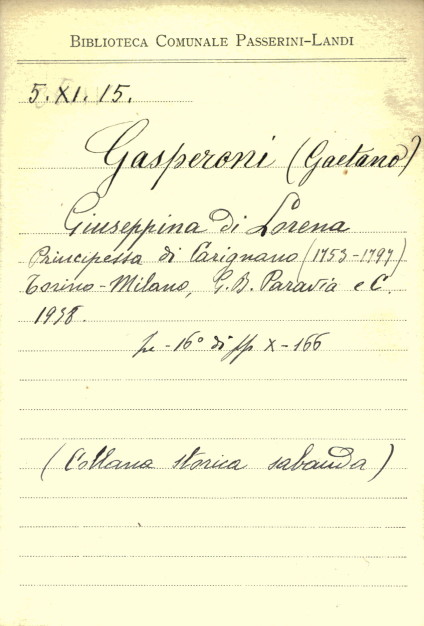 BIBLIOTECA COMUNALE PASSERINI-LANDI
5. XI. 15.
Gasperoni (Gaetano)
Giuseppina di Lorena
Principessa di Carignano (1753-1797)
Torino-Milano, G. B. Paravia e C.
1938.
in-16° di pp X-166
(Collana storica sabauda)